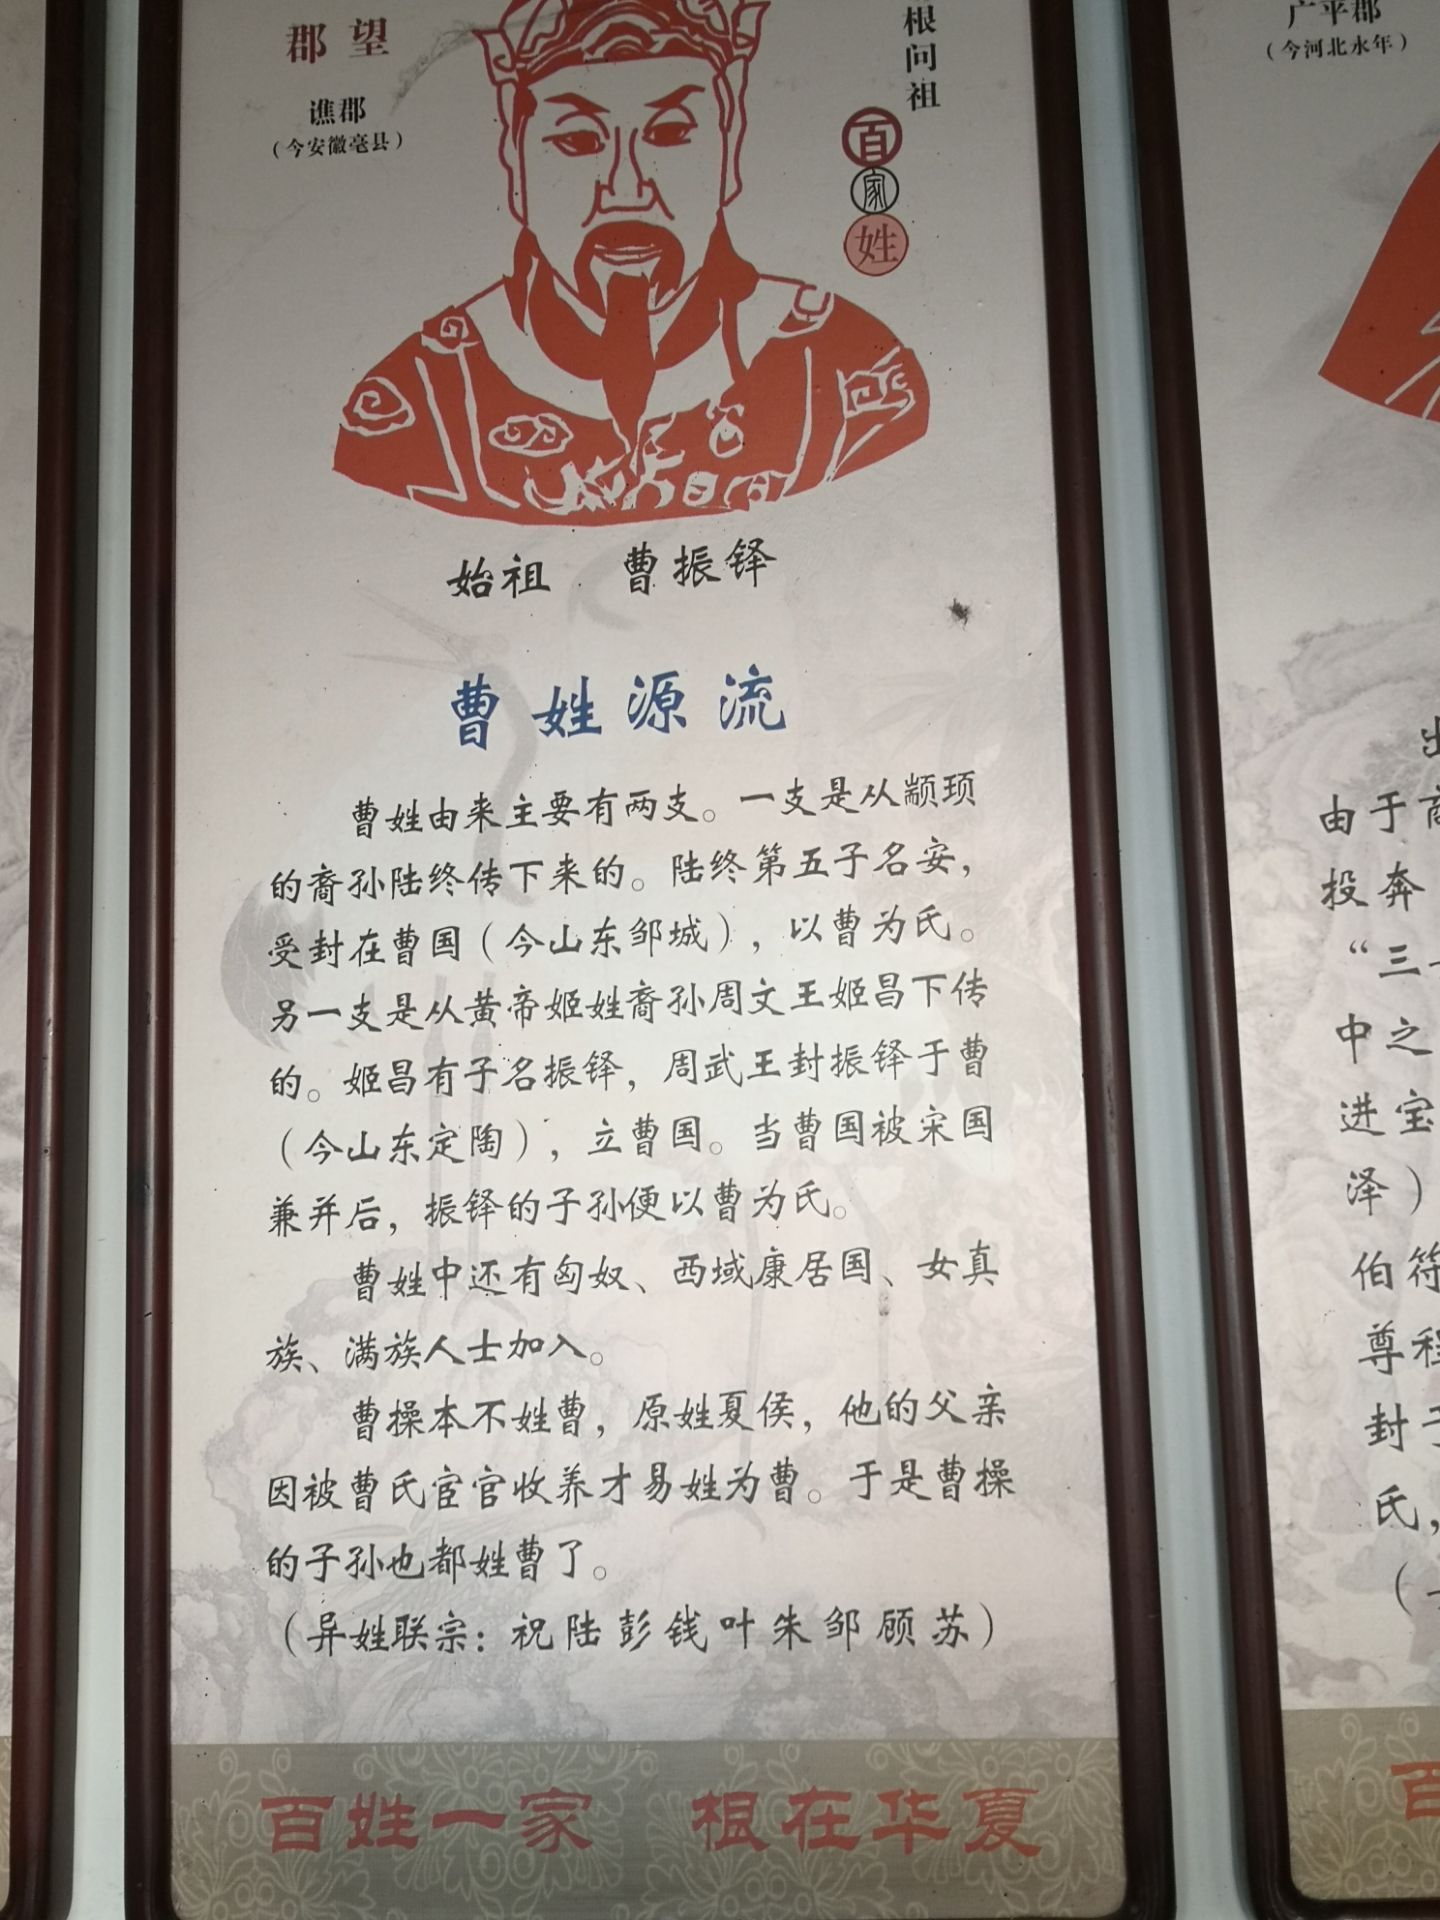 郡望
谯郡
（今安徽亳县）
根问祖
百家姓
始祖 曹振铎
曹姓源流
曹姓由来主要有两支。一支是从颛顼
的裔孙陆终传下来的。陆终第五子名安，
受封在曹国（今山东邹城），以曹为氏。
另一支是从黄帝姬姓裔孙周文王姬昌下传
的。姬昌有子名振铎，周武王封振铎于曹
（今山东定陶），立曹国。当曹国被宋国
兼并后，振铎的子孙便以曹为氏。
曹姓中还有匈奴、西域康居国、女真
族、满族人士加入。
曹操本不姓曹，原姓夏侯，他的父亲
因被曹氏宦官收养才易姓为曹。于是曹操
的子孙也都姓曹了。
（异姓联宗：祝陆彭钱叶朱邹顾苏）
百姓一家 根在华夏
广平郡
（今河北永年）
由于商
投奔
“三
中之
进宝
泽）
伯符
尊程
封于
氏，
（
百